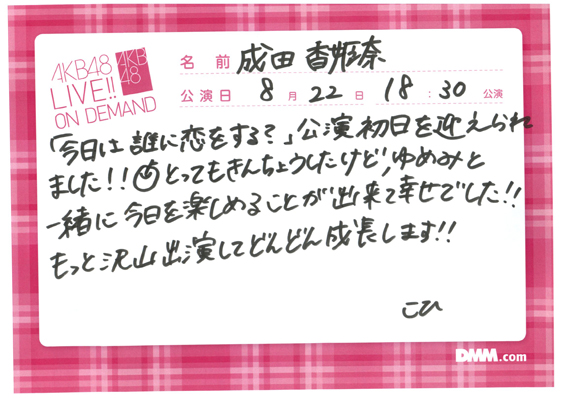 AKB48
LIVE!!
ON DEMAND
AKB
48
名前 成田 香姫奈
公演日 8月22日 18:30公演
「今日は誰に恋をする?」公演初日を迎えられ
ました!! とってもきんちょうしたけど、ゆめみと
一緒に今日を楽しめることが出来て幸せでした!!
もっと沢山出演してどんどん成長します!!
こひ
DMM.com